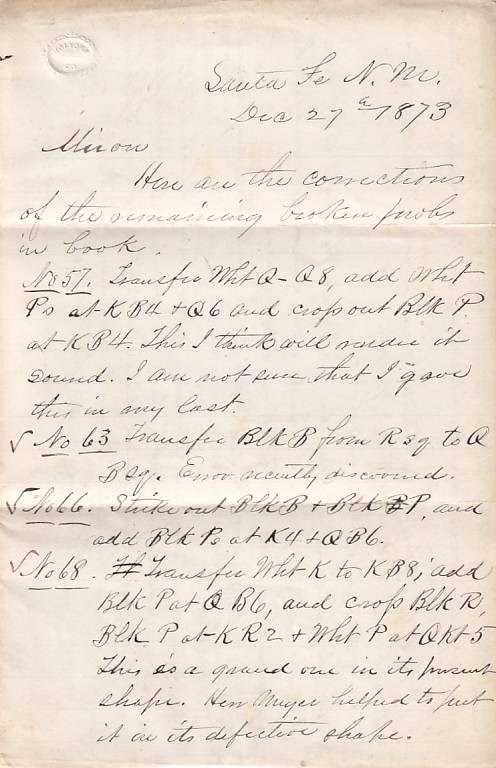 Santa Fe N. M.
Dec 27th 1873
Miron
Here are the corrections
of the remaining broken probs
in book.
No 57. Transfer Wht Q - Q8, add Wht
Ps at KB4 + Q6 and crop out Blk P.
at KB4. This I think will render it
sound. I am not sure that I gave
this in my last.
√ No 63 Transfer Blk B from R sq to Q
B sq. Error recently discovered.
√ No 66. Strike out Blk B + Blk P, and
add Blk Ps at K4 + QB6.
√ No 68. Transfer Wht K to KB8; add
Blk P at QB6, and crop Blk R,
Blk P at KR2 + Wht P at QKt5
This is a grand one in its present
shape. Herr Meyer helped to put
it in its defective shape.